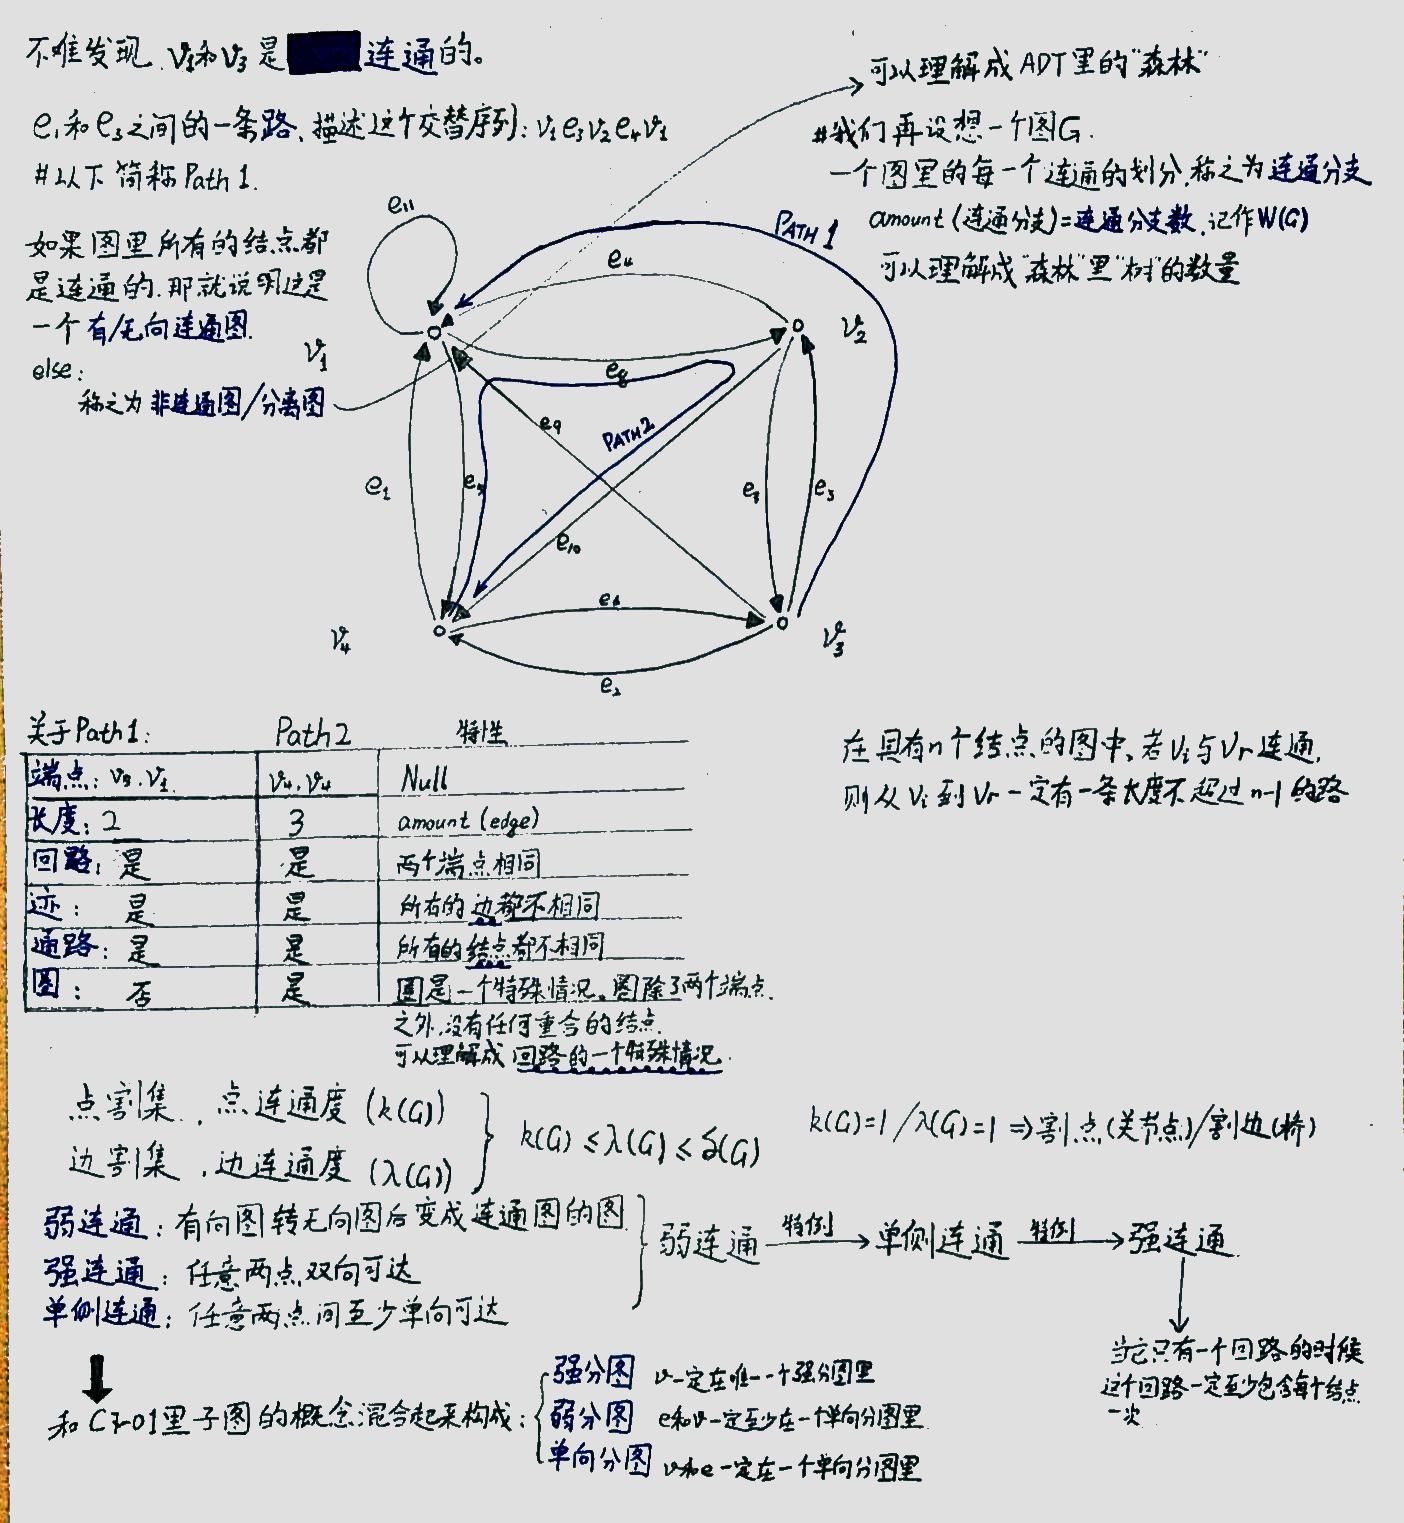 不难发现, v₁和v₃是 连通的。
e₁和e₃之间的一条路, 描述这个交替序列: v₃e₃v₂e₄v₁
#以下简称Path 1.
如果图里所有的结点都
是连通的, 那就说明这是
一个有/无向连通图.
else:
称之为非连通图/分离图
可以理解成ADT里的"森林"
#我们再设想一个图G.
一个图里的每一个连通的划分, 称之为连通分支
amount (连通分支)=连通分支数, 记作W(G)
可以理解成"森林"里"树"的数量
e₁₁
PATH 1
e₄
v₁
v₂
e₈
e₉
PATH2
e₁
e₅
e₇
e₃
e₁₀
e₆
v₄
v₃
e₂
关于Path1: Path2 特性
端点: v₃.v₁ v₄.v₄ Null
长度: 2 3 amount (edge)
回路: 是 是 两个端点相同
迹: 是 是 所有的边都不相同
通路: 是 是 所有的结点都不相同
圈: 否 是 圈是一个特殊情况。圈除了两个端点
之外, 没有任何重合的结点.
可以理解成回路的一个特殊情况.
在具有n个结点的图中, 若vᵢ与vᵣ连通,
则从vᵢ到vᵣ一定有一条长度不超过n-1的路
点割集, 点连通度 (k(G))
边割集, 边连通度 (λ(G))
k(G) ≤ λ(G) ≤ δ(G)
k(G)=1 / λ(G)=1 ⇒ 割点(关节点)/割边(桥)
弱连通: 有向图转无向图后变成连通图的图
强连通: 任意两点双向可达
单侧连通: 任意两点间至少单向可达
弱连通 特例→ 单侧连通 特例→ 强连通
当它只有一个回路的时候
这个回路一定至少包含每个结点
一次
和C7-01里子图的概念混合起来构成:
强分图 v一定在唯一一个强分图里
弱分图 e和v一定至少在一个单向分图里
单向分图 v和e一定在一个单向分图里